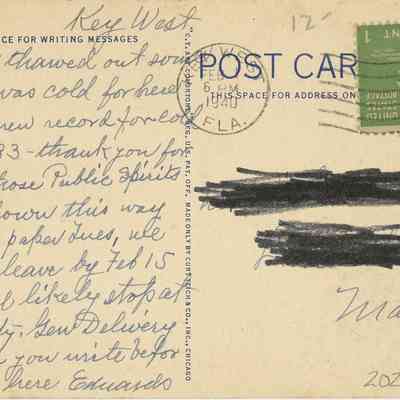 Key West
12
CE FOR WRITING MESSAGES
thawed out som
was cold for here
new record for col
33 - thank you for
rose Public Spirits
down this way
paper Tues, we
leave by Feb 15
likely stop at
Gen Delivery
you write befor
here Eduards
"C.T. ART-COLORTONE" REG. U.S. PAT. OFF. MADE ONLY BY CURT TEICH & CO., INC., CHICAGO
POST CAR
THIS SPACE FOR ADDRESS ON
KEY WEST
FEB
6 PM
1940
FLA.
1
UNITED STATES
POSTAGE
Ma
202